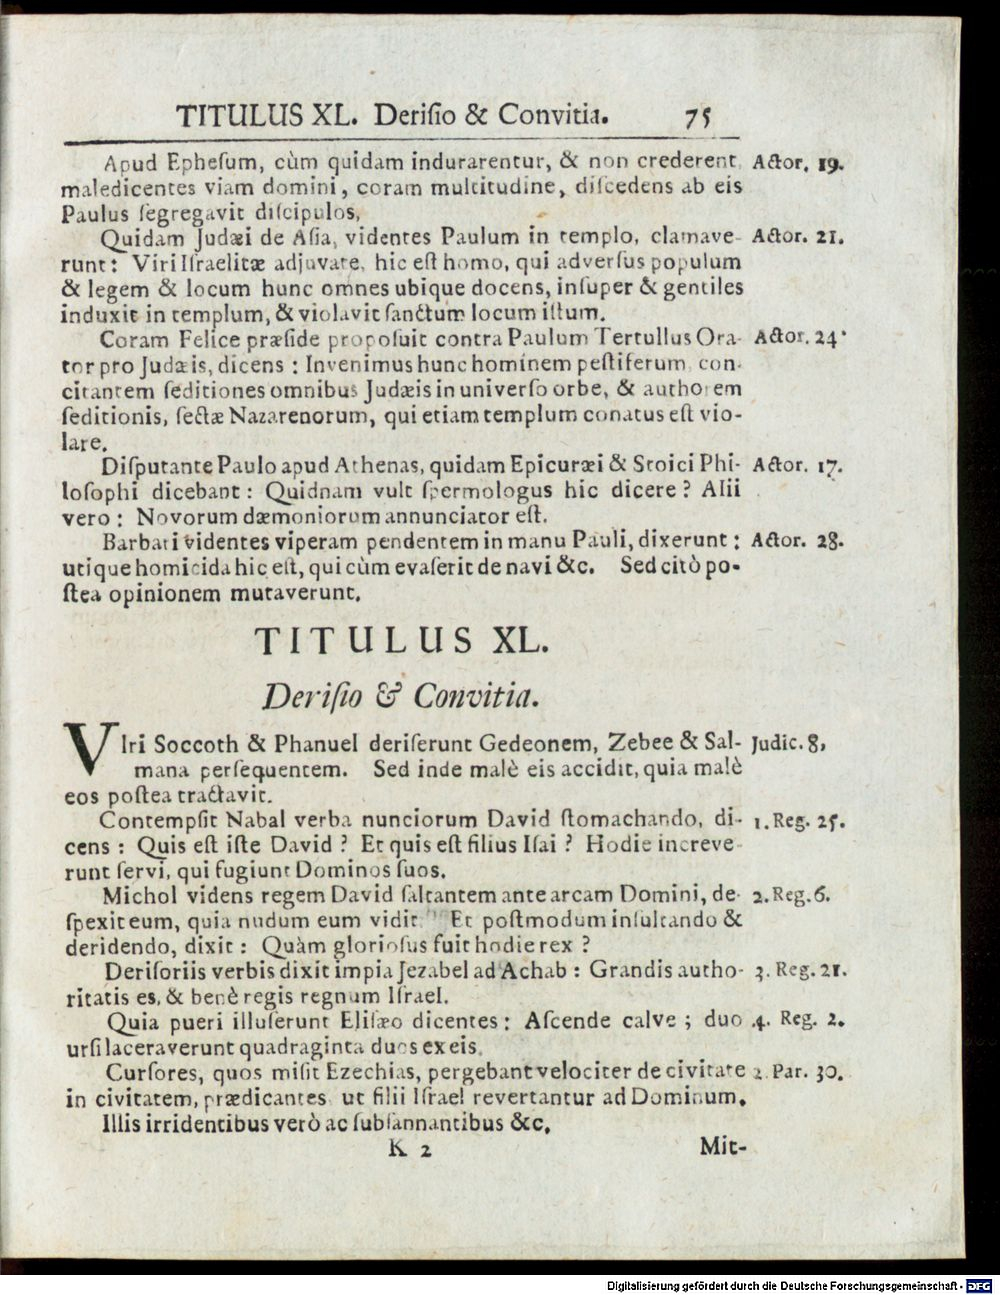 TITULUS XL. Deriſio & Convitia. 75
Apud Epheſum, cùm quidam indurarentur, & non crederent Actor. 19.
maledicentes viam domini, coram multitudine, diſcedens ab eis
Paulus ſegregavit diſcipulos,
Quidam Judæi de Aſia, videntes Paulum in templo, clamave- Actor. 21.
runt: Viri Iſraelitæ adjuvate, hic eſt homo, qui adverſus populum
& legem & locum hunc omnes ubique docens, inſuper & gentiles
induxit in templum, & violavit ſanctum locum iſtum.
Coram Felice præſide propoſuit contra Paulum Tertullus Ora- Actor. 24.
tor pro Judæis, dicens: Invenimus hunc hominem peſtiferum, con-
citantem ſeditiones omnibus Judæis in univerſo orbe, & authorem
ſeditionis, ſectæ Nazarenorum, qui etiam templum conatus eſt vio-
lare.
Diſputante Paulo apud Athenas, quidam Epicuræi & Stoici Phi- Actor. 17.
loſophi dicebant: Quidnam vult ſpermologus hic dicere? Alii
vero: Novorum dæmoniorum annunciator eſt.
Barbari videntes viperam pendentem in manu Pauli, dixerunt: Actor. 28.
utique homicida hic eſt, qui cùm evaſerit de navi &c. Sed citò po-
ſtea opinionem mutaverunt.
TITULUS XL.
Deriſio & Convitia.
VIri Soccoth & Phanuel deriſerunt Gedeonem, Zebee & Sal- Judic. 8,
mana perſequentem. Sed inde malè eis accidit, quia malè
eos poſtea tractavit.
Contempſit Nabal verba nunciorum David ſtomachando, di- 1. Reg. 25.
cens: Quis eſt iſte David? Et quis eſt filius Iſai? Hodie increve-
runt ſervi, qui fugiunt Dominos ſuos.
Michol videns regem David ſaltantem ante arcam Domini, de- 2. Reg. 6.
ſpexit eum, quia nudum eum vidit. Et poſtmodum inſultando &
deridendo, dixit: Quàm glorioſus fuit hodie rex?
Deriſoriis verbis dixit impia Jezabel ad Achab: Grandis autho- 3. Reg. 21.
ritatis es, & benè regis regnum Iſrael.
Quia pueri illuſerunt Eliſæo dicentes: Aſcende calve; duo 4. Reg. 2.
urſi laceraverunt quadraginta duos ex eis.
Curſores, quos miſit Ezechias, pergebant velociter de civitate 2. Par. 30.
in civitatem, prædicantes ut filii Iſrael revertantur ad Dominum.
Illis irridentibus verò ac ſubſannantibus &c.
K 2 Mit-
Digitalisierung gefördert durch die Deutsche Forschungsgemeinschaft - DFG